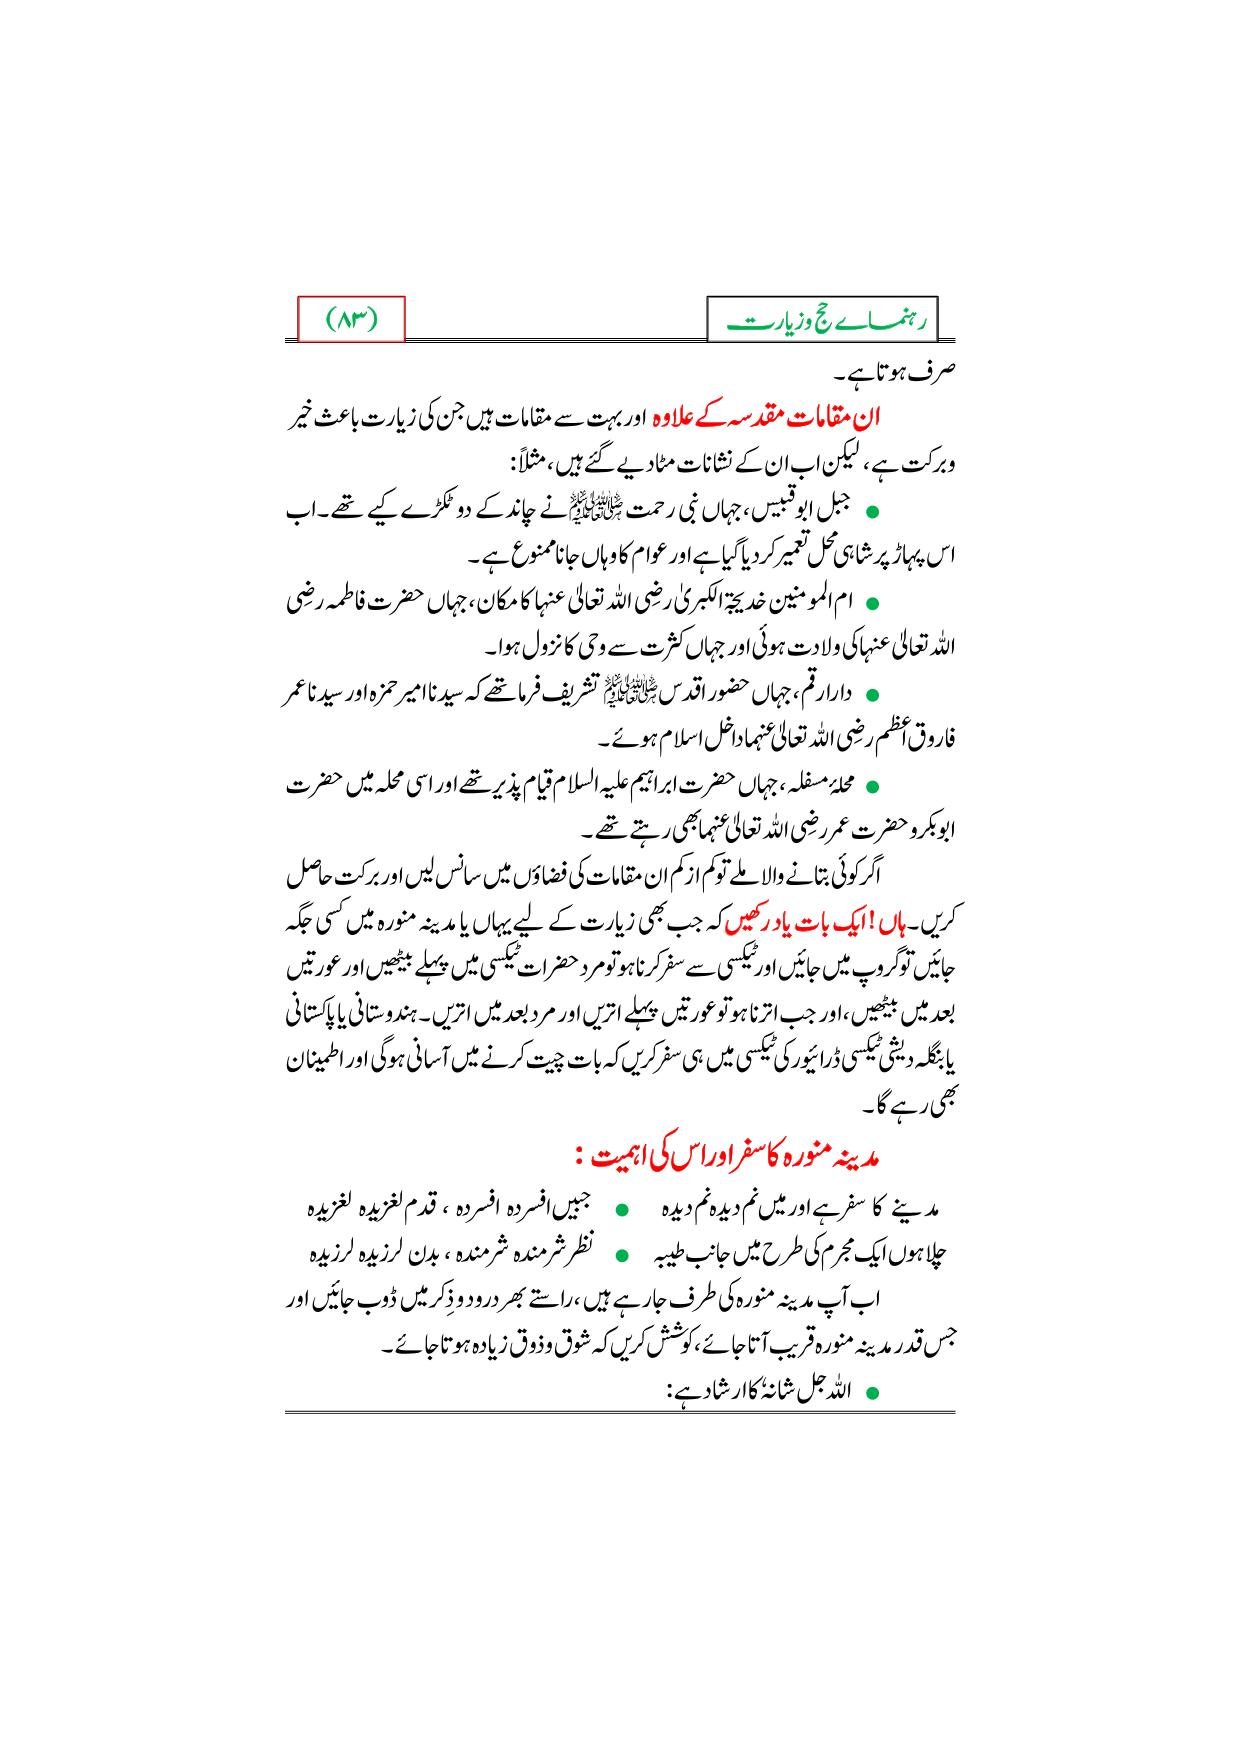 رہنماے حج وزیارت (۸۳)
صرف ہوتا ہے۔
ان مقامات مقدسہ کے علاوہ اور بہت سے مقامات ہیں جن کی زیارت باعث خیر
وبرکت ہے، لیکن اب ان کے نشانات مٹادیے گئے ہیں، مثلاً:
● جبل ابو قبیس، جہاں نبی رحمت ﷺ نے چاند کے دو ٹکڑے کیے تھے۔ اب
اس پہاڑ پر شاہی محل تعمیر کر دیا گیا ہے اور عوام کا وہاں جانا ممنوع ہے۔
● ام المومنین خدیجۃ الکبریٰ رضِی اللہ تعالیٰ عنہا کا مکان، جہاں حضرت فاطمہ رضِی
اللہ تعالیٰ عنہا کی ولادت ہوئی اور جہاں کثرت سے وحی کا نزول ہوا۔
● دار ارقم، جہاں حضور اقدس ﷺ تشریف فرما تھے کہ سیدنا امیر حمزہ اور سیدنا عمر
فاروق اعظم رضِی اللہ تعالیٰ عنہما داخل اسلام ہوئے۔
● محلۂ مسفلہ، جہاں حضرت ابراہیم علیہ السلام قیام پذیر تھے اور اسی محلہ میں حضرت
ابو بکر و حضرت عمر رضِی اللہ تعالیٰ عنہما بھی رہتے تھے۔
اگر کوئی بتانے والا ملے تو کم از کم ان مقامات کی فضاؤں میں سانس لیں اور برکت حاصل
کریں۔ ہاں! ایک بات یاد رکھیں کہ جب بھی زیارت کے لیے یہاں یا مدینہ منورہ میں کسی جگہ
جائیں تو گروپ میں جائیں اور ٹیکسی سے سفر کرنا ہو تو مرد حضرات ٹیکسی میں پہلے بیٹھیں اور عورتیں
بعد میں بیٹھیں، اور جب اترنا ہو تو عورتیں پہلے اتریں اور مرد بعد میں اتریں۔ ہندوستانی یا پاکستانی
یا بنگلہ دیشی ٹیکسی ڈرائیور کی ٹیکسی میں ہی سفر کریں کہ بات چیت کرنے میں آسانی ہوگی اور اطمینان
بھی رہے گا۔
مدینہ منورہ کا سفر اور اس کی اہمیت :
مدینے کا سفر ہے اور میں نم دیدہ نم دیدہ ● جبیں افسردہ افسردہ ، قدم لغزیدہ لغزیدہ
چلا ہوں ایک مجرم کی طرح میں جانب طیبہ ● نظر شرمندہ شرمندہ ، بدن لرزیدہ لرزیدہ
اب آپ مدینہ منورہ کی طرف جارہے ہیں، راستے بھر درود و ذِکر میں ڈوب جائیں اور
جس قدر مدینہ منورہ قریب آتا جائے، کوشش کریں کہ شوق و ذوق زیادہ ہوتا جائے۔
● اللہ جل شانہٗ کا ارشاد ہے: